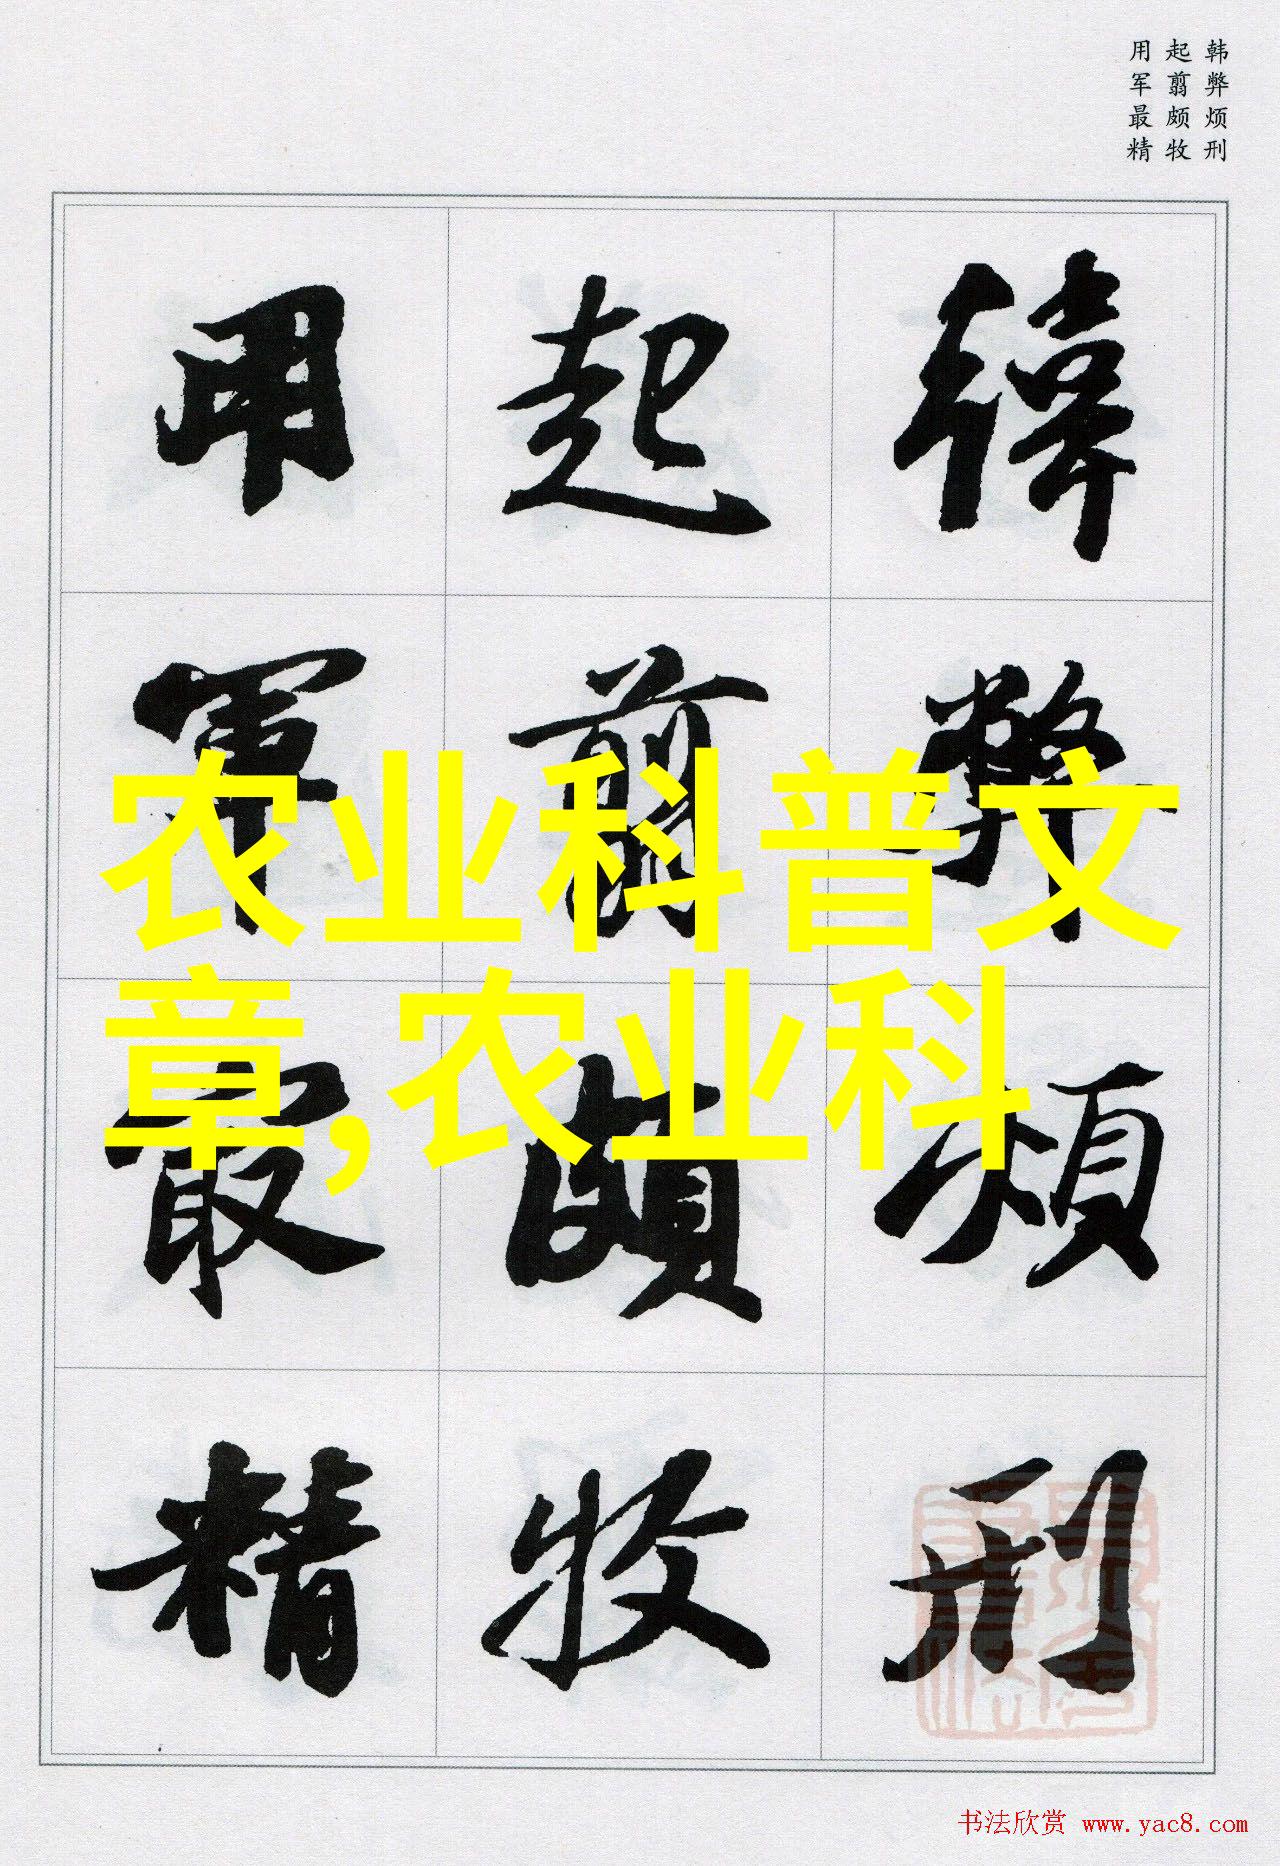 韩弊烦刑
起翦颇牧
用军最精
韓弊煩刑
起翦頗牧
用軍最精
农业科普文
章,农业科
书法欣赏 www.yac8.com